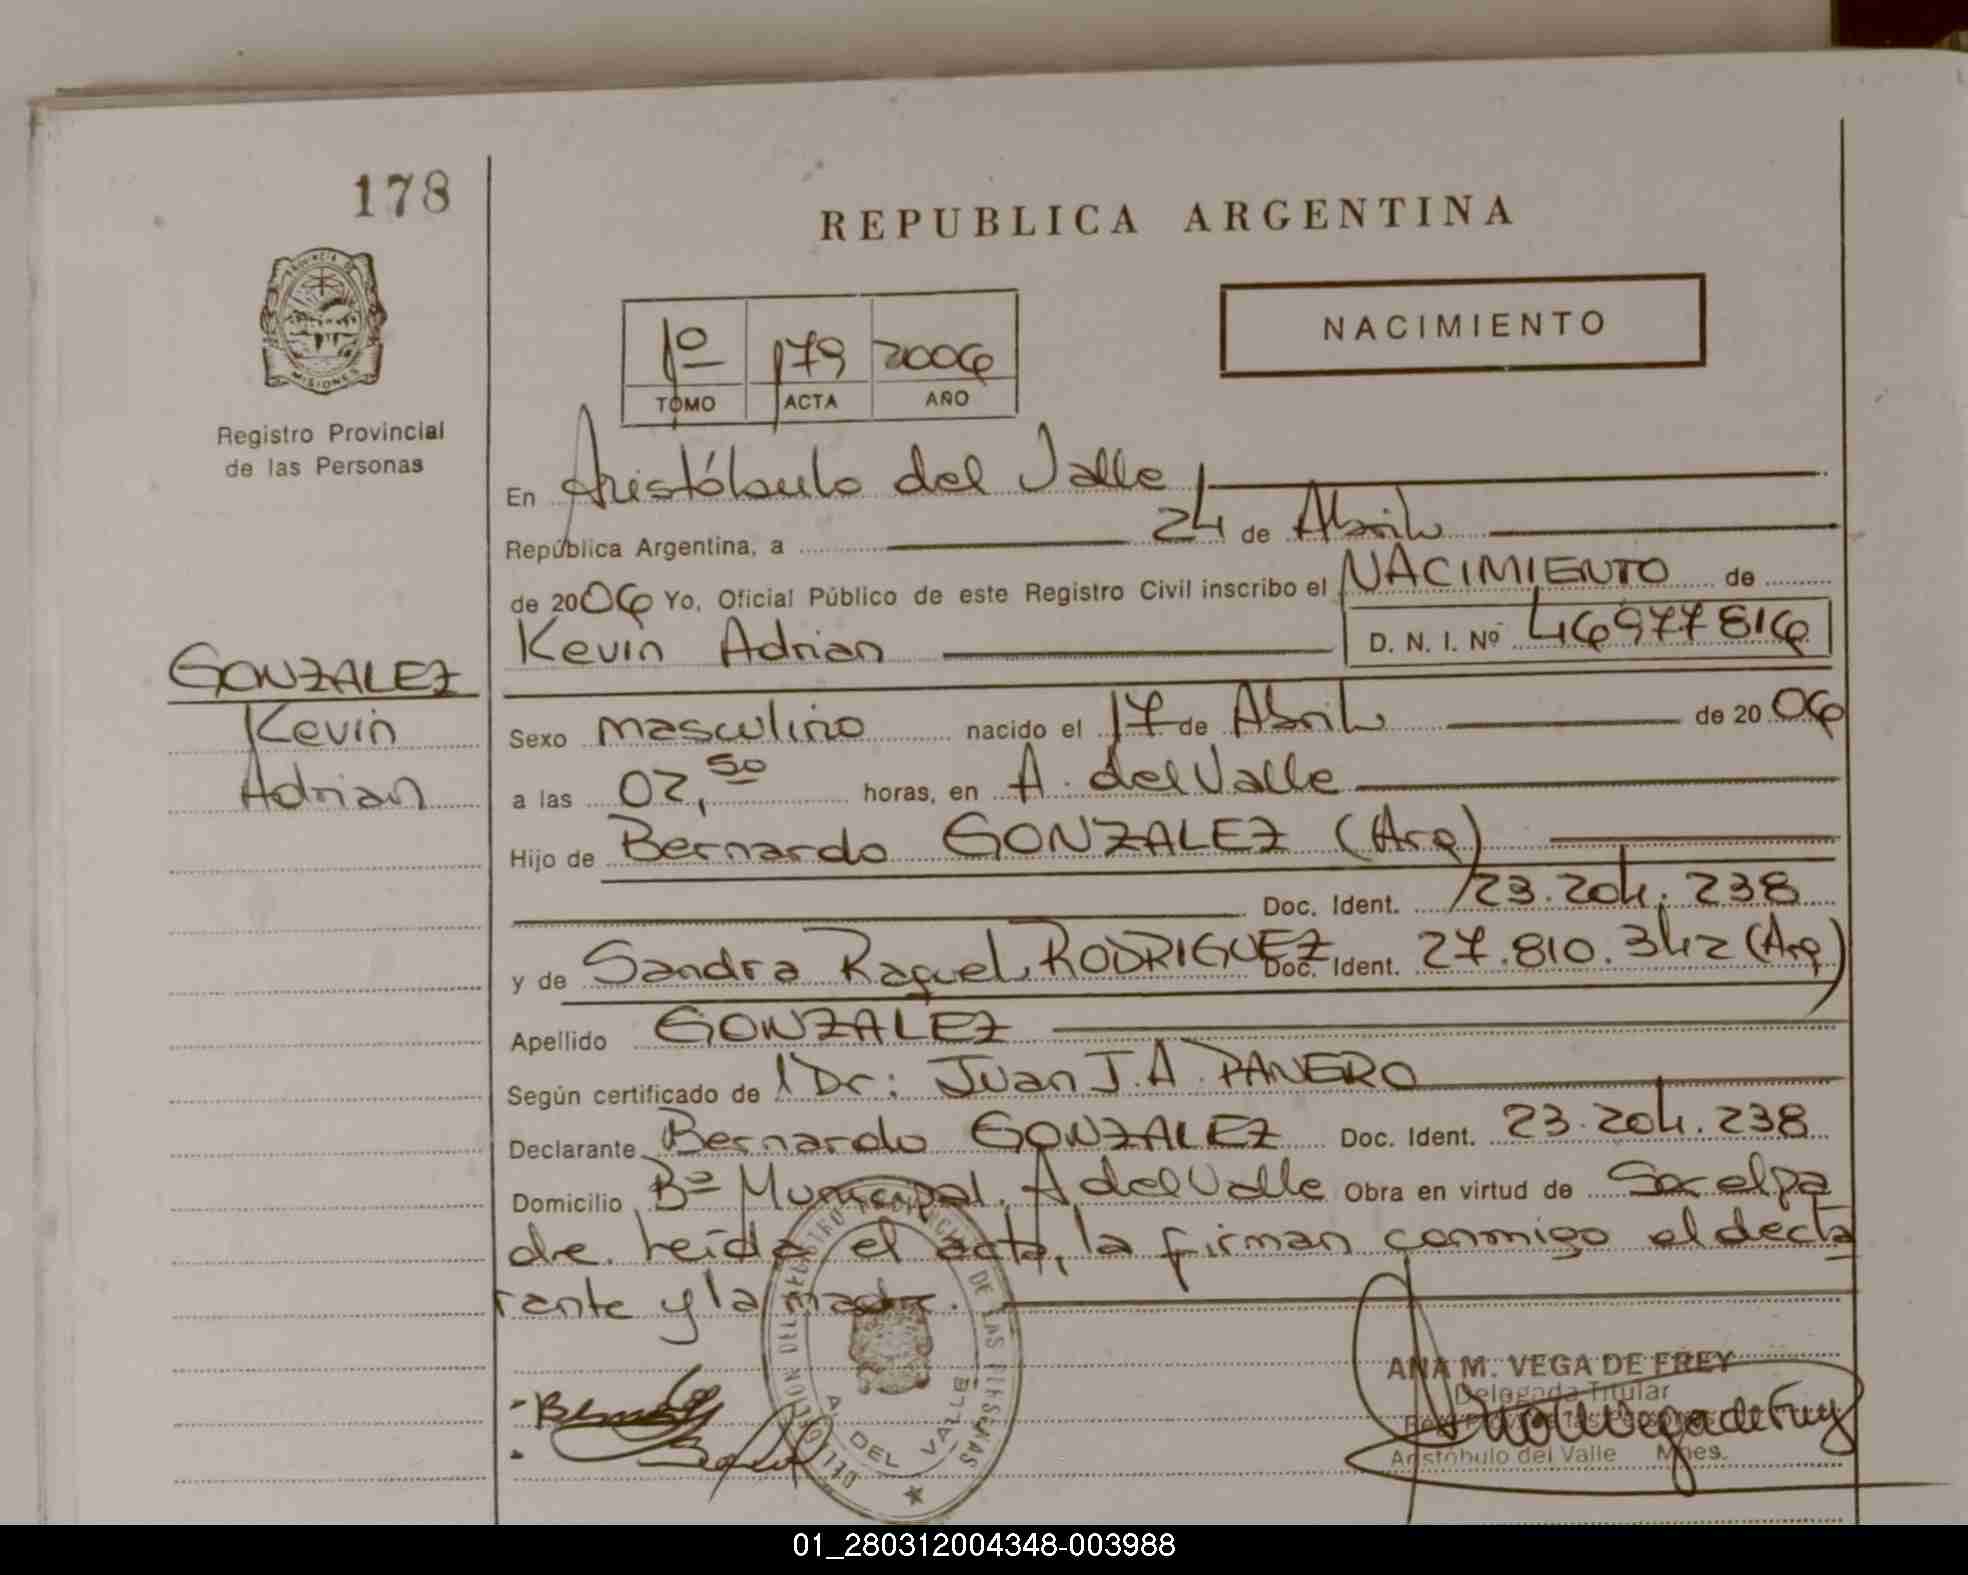 178
REPUBLICA ARGENTINA
PROVINCIA DE
MISIONES
Registro Provincial
de las Personas
1º 179 2006
TOMO ACTA AÑO
NACIMIENTO
En Aristóbulo del Valle
República Argentina, a 24 de Abril
de 2006 Yo, Oficial Público de este Registro Civil inscribo el NACIMIENTO de
Kevin Adrian D. N. I. Nº 46977816
GONZALEZ
Kevin
Adrian
Sexo masculino nacido el 17 de Abril de 20 06
a las 02,50 horas, en A. del Valle
Hijo de Bernardo GONZALEZ (Arg)
Doc. Ident. 23.204.238
y de Sandra Raquel RODRIGUEZ Doc. Ident. 27.810.342 (Arg)
Apellido GONZALEZ
Según certificado de Dr: Juan J.A. PANERO
Declarante Bernardo GONZALEZ Doc. Ident. 23.204.238
Domicilio Bº Municipal. A del Valle Obra en virtud de Ser el pa
dre. leida el acta, la firman conmigo el decla
rante y la madre.
DELEGACION DEL REGISTRO PROVINCIAL DE LAS PERSONAS
A. DEL VALLE
ANA M. VEGA DE FREY
Delegada Titular
Aristóbulo del Valle Mnes.
01_280312004348-003988